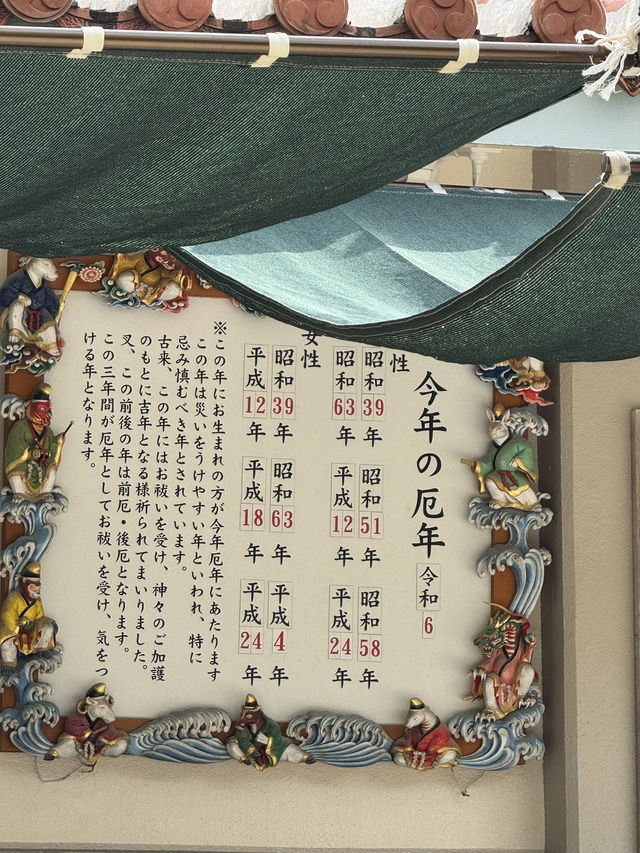 今年の厄年 令和6
性
昭和39年 昭和51年 昭和58年
昭和63年 平成12年 平成24年
女性
昭和39年 昭和63年 平成4年
平成12年 平成18年 平成24年
※この年にお生まれの方が今年厄年にあたります
この年は災いをうけやすい年といわれ、特に
忌み慎むべき年とされています。
古来、この年にはお祓いを受け、神々のご加護
のもとに吉年となる様祈られてまいりました。
又、この前後の年は前厄・後厄となります。
この三年間が厄年としてお祓いを受け、気をつ
ける年となります。